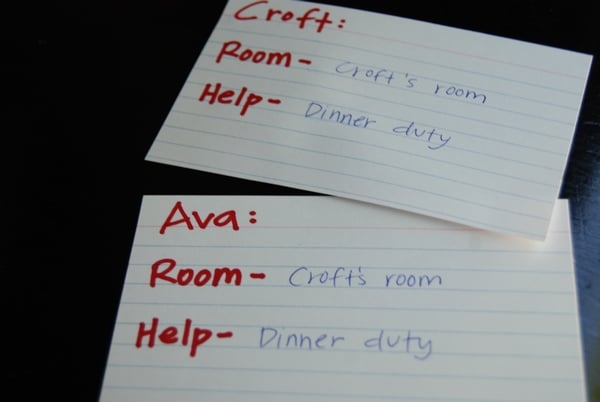 Croft:
Room- Croft's room
Help- Dinner duty
Ava:
Room- Croft's room
Help- Dinner duty